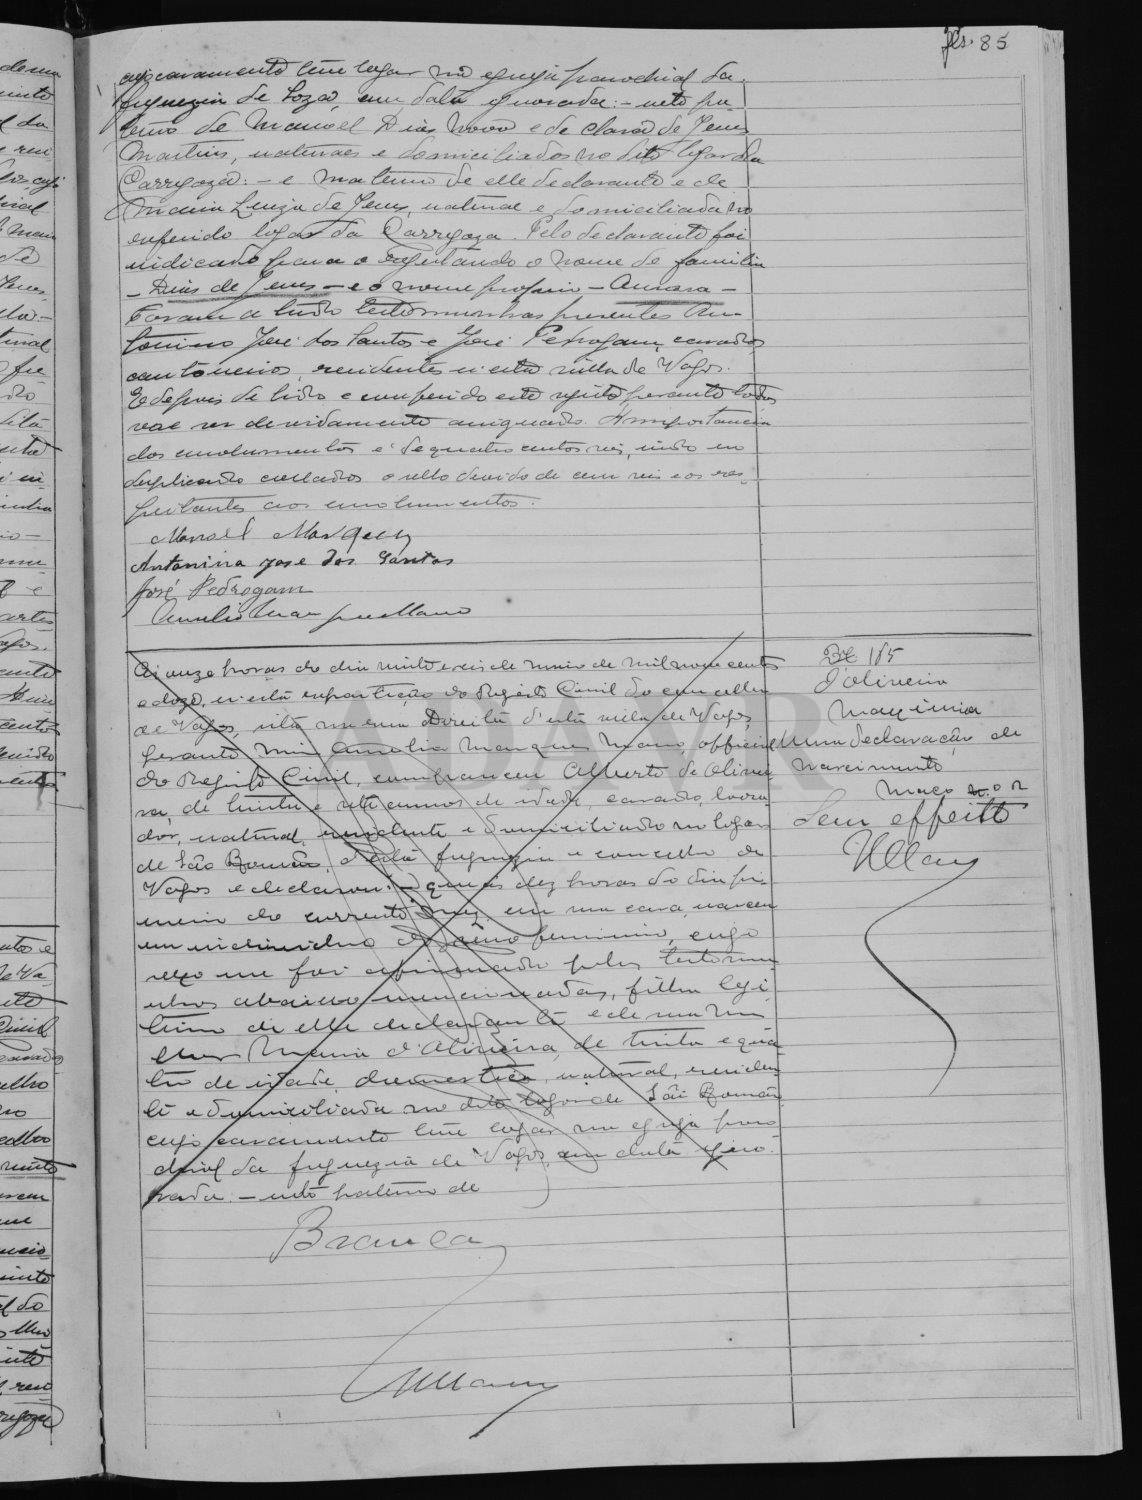 fls. 85
cujo casamento teve logar na egreja parochial da
freguezia de Soza, em data ignorada: - neto pa
terno de Manoel Dias Novo e de Clara de Jesus
Martins, naturaes e domiciliados no dito logar da
Carregoza: - e materno de elle declarante e de
Maria Luiza de Jesus, natural e domiciliada no
referido logar da Carregoza. Pelo declarante foi
indicado para o registando o nome de familia
- Dias de Jesus - e o nome proprio - Aurora -
Foram a tudo testemunhas presentes An-
tonino José dos Santos e José Pedrogam, casados
cantoneiros, residentes n'esta villa de Vagos.
E depois de lido e conferido este registo perante todos
vae ser devidamente assignado. A importancia
dos emolumentos é de quatro centos reis, indo no
duplicado collados o sello devido de cem reis e os res-
peitantes aos emolumentos.
Manoel Marques
Antonino José dos Santos
José Pedrogam
Amelio Marques Mano
Ás onze horas do dia vinte e seis de maio de mil nove centos
e doze, n'esta repartição do Registo Civil do concelho
de Vagos, sita na rua Direita d'esta villa de Vagos,
perante mim Amelio Marques Mano, official
do Registo Civil, compareceu Alberto de Olivei
ra, de trinta e sete annos de idade, casado, lavra
dor, natural, residente e domiciliado no logar
de São Romão, d'esta freguezia e concelho de
Vagos e declarou: - que ás dez horas do dia pri
meiro do corrente mez em sua casa, nasceu
um individuo do sexo feminino, cujo
sexo me foi afirmado pelas testemu
nhas abaixo mencionadas, filha legi
tima de elle declarante e de sua mu
lher Maria d'Oliveira, de trinta e qua
tro de idade, domestica, natural, residen
te e domiciliada no dito logar de São Romão,
cujo casamento teve logar na egreja paro
chial da freguezia de Vagos, em data igno
rada: - neto paterno de
Branca
MMano
Nº 185
d'Oliveira
Maximina
Uma declaração de
nascimento
Maço n.º 2
Sem effeito
MMano
ADAVR